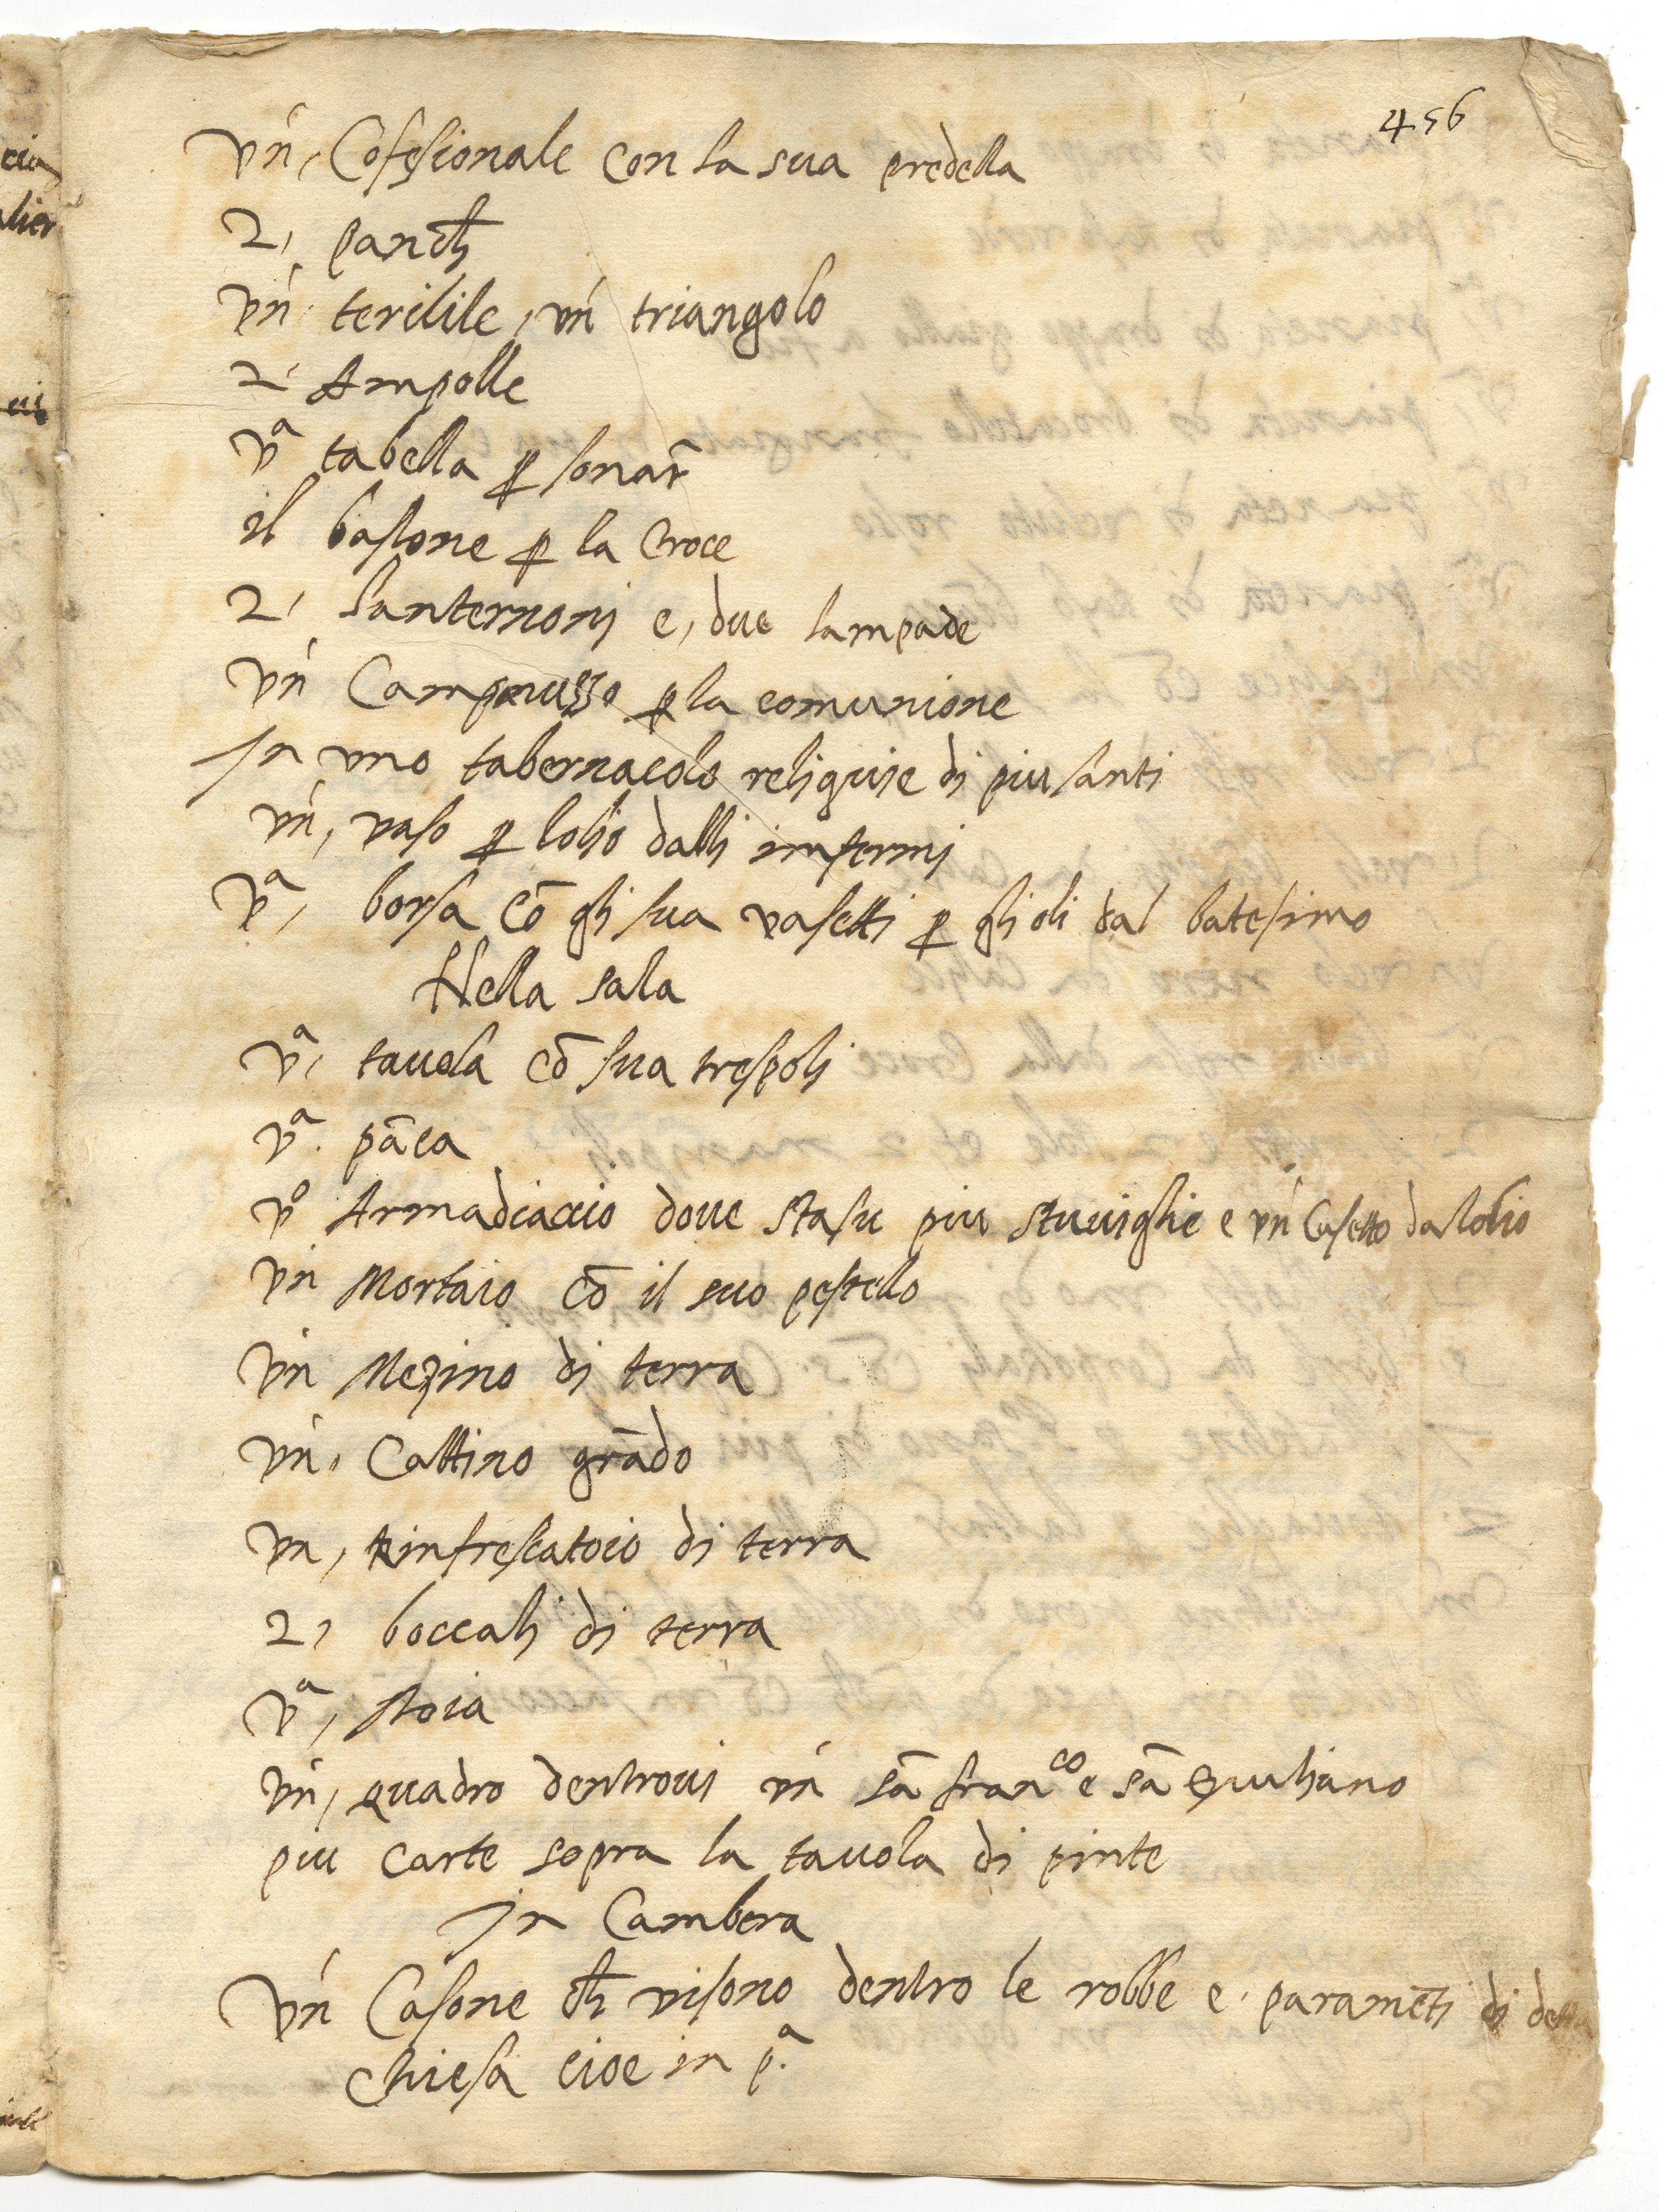 456
Vn, Cofesionale con la sua predella
2, panch
Vn terilile, vn triangolo
2 Ampolle
Vᵃ tabella ꝑ sonar
il bastone ꝑ la Croce
2, lanternonj e, due lampade
Vn ꝑ la comunione
In vno tabernacolo reliquie di piu santi
vn, vaso ꝑ lolio dalli infermj
Vᵃ, borsa cō gli sua vasetti ꝑ gli oli dal batesimo
Nella sala
Vᵃ, tauola cō sua trespoli
Vᵃ. pāca
Vº Armadiaccio doue stasu piu stuviglie e vn dalolio
Vn Mortaio cō il suo pestello
Vn Mezino di terra
Vn, Cattino grādo
Vn, Rinfrescatoio di terra
2, boccali di terra
Vᵃ, stoia
Vn, quadro dentroui vn sā franᶜᵒ e sā Giuliano
piu carte sopra la tauola di pinte
In Cambera
Vn Casone ch visono dentro le robbe e paramēti di detta
Chiesa cioe in pᵃ.